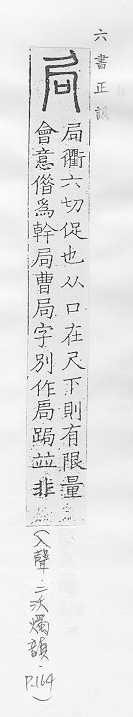 六書正譌
局
局衢六切促也从口在尺下則有限量
會意借爲幹局曹局字別作局跼竝非
(入聲.二沃燭韻.P.164)